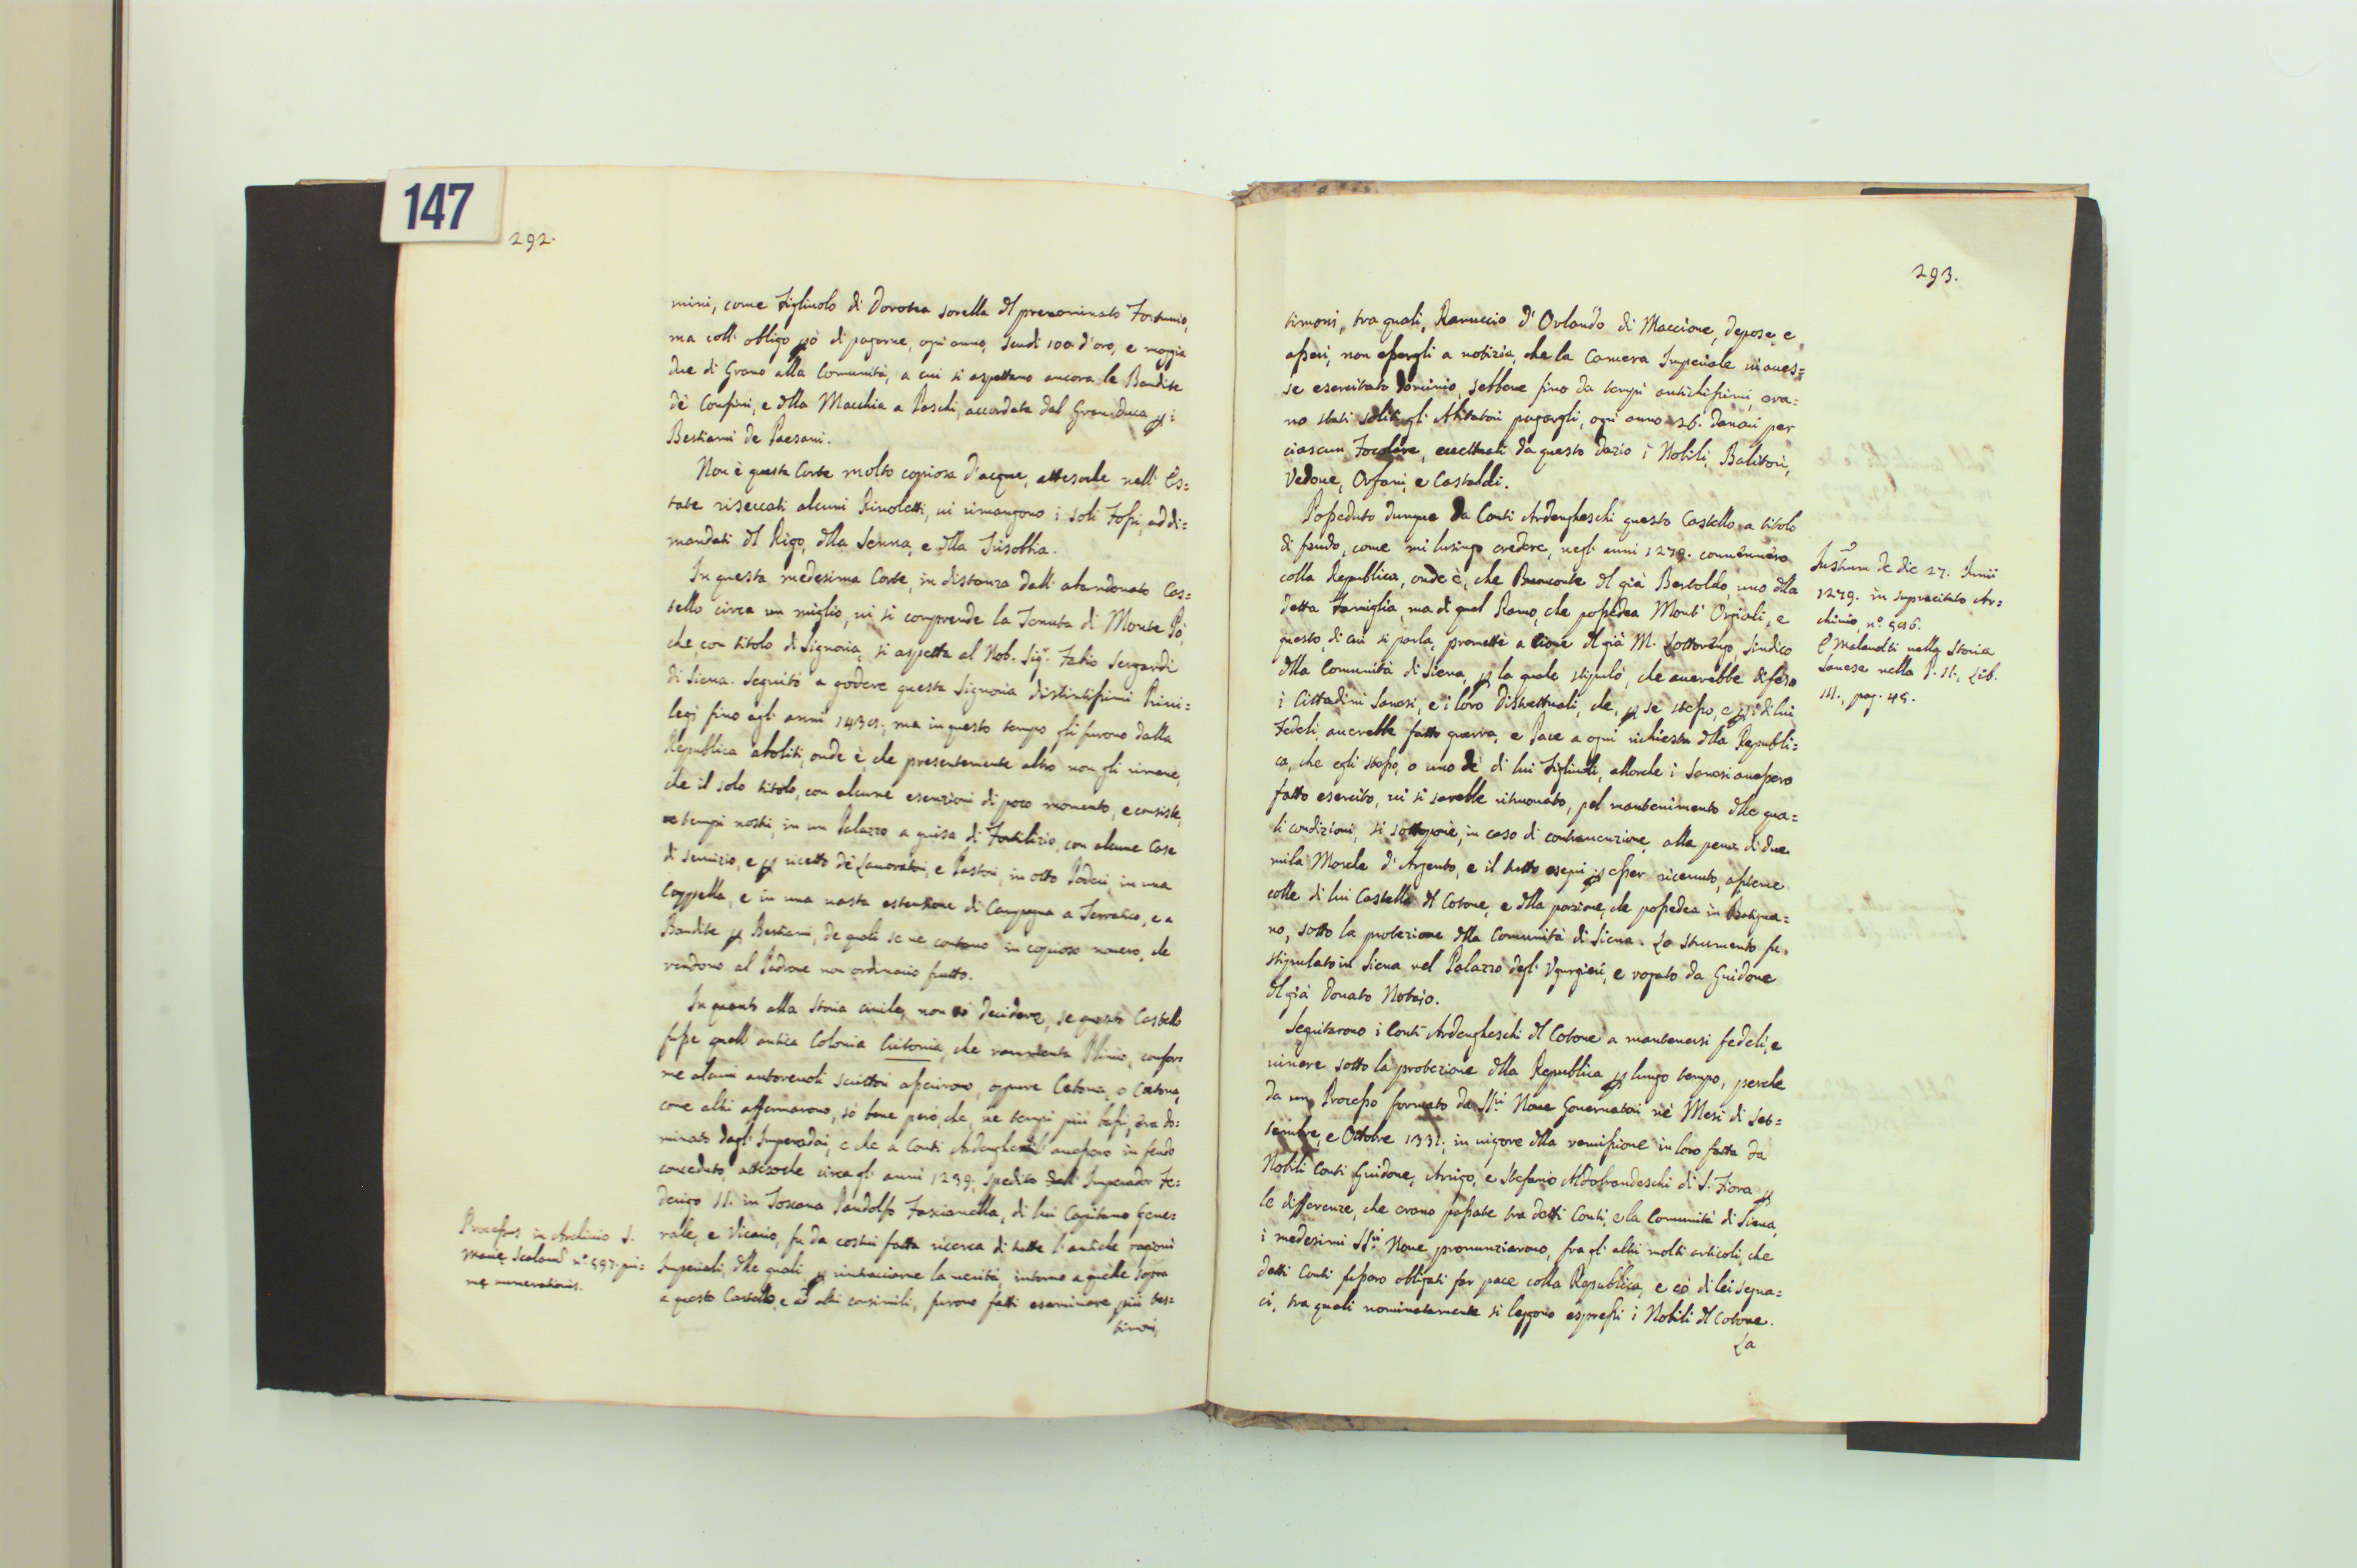 147
292.
mini, come Figliuolo di Dorotea sorella dl prenominato Fortunio,
ma coll' obligo però di pagarne, ogni anno, Scudi 100 d'oro, e moggia
due di Grano alla Comunità, a cui si aspettano ancora le Bandite
de' Confini, e dlla Macchia a Paschi, accordata dal Granduca per i
Bestiami de Paesani.
Non è questa Corte molto copiosa d'acque, attesoche nell' Es=
tate riseccati alcuni Rivoletti, vi rimangono i soli Fossi, addi=
mandati dl Rigo, dlla Senna, e dlla Trisolla.
In questa medesima Corte, in distanza dall' abandonato Cas=
tello circa un miglio, vi si comprende la Tenuta di Monte Pò,
che, con titolo di Signoria, si aspetta al Nob. Sig.r Fabio Sergardi
di Siena. Seguitò a godere questa Signoria distintissimi Privi=
legj fino agli anni 1438; ma in questo tempo gli furono dalla
Republica aboliti, onde è, che presentemente altro non gli rimane,
che il solo titolo, con alcune esenzioni di poco momento, e consiste,
ne tempi nostri, in un Palazzo a guisa di Fortilizio, con alcune Case
di servizio, e per ricetto de' Lavoratori, e Pastori, in otto Poderi, in una
Cappella, e in una vasta estenzione di Campagna a Terratico, e a
Bandite per Bestiami, de quali se ne contano in copioso novero, che
rendono al Padrone non ordinario frutto.
In quanto alla storia civile, non sò decidere, se questo Castello
fusse quell' antica Colonia Cutonia, che rammenta Plinio, confor=
me alcuni autorevoli scrittori asserirono, oppure Cetona, o Cortona,
come altri affermarono, sò bene però, che, ne tempi più bassi, era do=
minato dagl' Imperadori, e che a Conti Ardengheschi avessero in feudo
conceduto, attesoche circa gli anni 1239; spedito dall' Imperador Fe=
derigo II. in Toscana Pandolfo Fascianella, di lui Capitano Gene=
rale, e Vicario, fu da costui fatta ricerca di tutte l'antiche ragioni
Imperiali, dlle quali per rintracciarne la verità, intorno a quelle sopra
a questo Castello, e ad altri consimili, furono fatti esaminare più tes=
timoni,
Processus in Archivio S.
Marie Scalarū n.° 597. pri=
mę numerationis.
293.
timoni, tra quali, Ranuccio d'Orlando di Maccione, depose, e
asserì, non essergli a notizia, che la Camera Imperiale vi aves=
se esercitato dominio, sebbene fino da tempi antichissimi, era=
no stati soliti gli Abitatori pagargli, ogni anno 26. danari per
ciascun Focolare, eccettuati da questo dazio i Nobili, Balitori,
Vedove, Orfani, e Castaldi.
Posseduto dunque da Conti Ardengheschi questo Castello a titolo
di feudo, come mi lusingo credere, negli anni 1279. convennero
colla Republica, onde è, che Buonconte dl già Bertoldo, uno dlla
detta Famiglia, ma di quel Ramo, che possedea Monti Orgiali, e
questo, di cui si parla, promette a Cione dl già M. Lottoringo, Sindico
dlla Comunità di Siena, per la quale stipulò, che averebbe difeso
i Cittadini Sanesi, e i loro Distrettuali, che, per se stesso, e per i di lui
Fedeli, averebbe fatto guerra, e Pace a ogni richiesta dlla Republi=
ca, che egli stesso, o uno de' di lui Figliuoli, allorche i Sanesi avessero
fatto esercito, vi si sarebbe ritrovato, pel mantenimento dlle qua=
li condizioni, si sottopone, in caso di contravenzione, alla pena di due
mila Marche d'Argento, e il tutto eseguì per esser ricevuto, assieme
colle di lui Castella dl Cotone, e dlla porzione, che possedea in Batigna=
no, sotto la protezione dlla Comunità di Siena. Lo strumento fu
stipulato in Siena nel Palazzo degl' Ugurgieri, e rogato da Guidone
dl già Donato Notajo.
Seguitarono i Conti Ardengheschi dl Cotone a mantenersi fedeli, e
vivere sotto la protezione dlla Republica per lungo tempo, perche
da un Processo formato da SS.ri Nove Governatori ne' Mesi di Set=
tembre, e Ottobre 1331; in vigore dlla remissione in loro fatta da
Nobili Conti Guidone, Arrigo, e Stefano Aldobrandeschi di S. Fiora per
le differenze, che erano passate tra detti Conti, e la Comunità di Siena,
i medesimi SS.ri Nove pronunziarono, fra gli altri molti articoli, che
detti Conti fussero obligati far pace colla Republica, e cò di lei segua=
ci, tra quali nominatamente si leggono espressi i Nobili dl Cotone.
La
Instrum de die 27. Junii
1279. in supracitato Ar=
chivio, n.° 906.
E Malavolti nella Storia
Sanese nella P. II., Lib.
III., pag. 49.